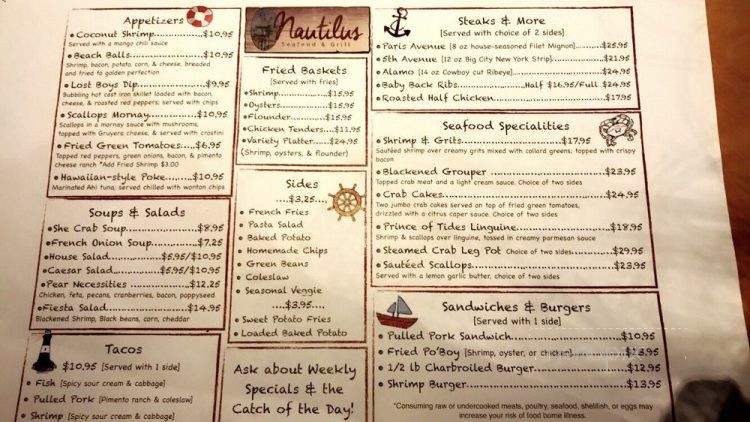 Appetizers
• Coconut Shrimp.....$10.95
Served with a mango chili sauce
• Beach Balls.....$10.95
Shrimp, bacon, potato, corn, & cheese, breaded
and fried to golden perfection
• Lost Boys Dip.....$9.95
Bubbling hot cast iron skillet loaded with bacon,
cheese, & roasted red peppers; served with chips
• Scallops Mornay.....$10.95
Scallops in a mornay sauce with mushrooms,
topped with Gruyere cheese, & served with crostini
• Fried Green Tomatoes....$6.95
Topped red peppers, green onions, bacon, & pimento
cheese ranch *Add Fried Shrimp $3.00
• Hawaiian-style Poke.....$10.95
Marinated Ahi tuna, served chilled with wonton chips
Soups & Salads
• She Crab Soup.....$8.95
• French Onion Soup.....$7.25
• House Salad.....$5.95/$10.95
• Caesar Salad.....$5.95/$10.95
• Pear Necessities.....$12.25
Chicken, feta, pecans, cranberries, bacon, poppyseed
• Fiesta Salad.....$14.95
Blackened Shrimp, Black beans, corn, cheddar
Tacos
$10.95 [Served with 1 side]
• Fish [Spicy sour cream & cabbage]
• Pulled Pork [Pimento ranch & coleslaw]
• Shrimp [Spicy sour cream & cabbage]
Nautilus
Seafood & Grill
Fried Baskets
[Served with fries]
• Shrimp.....$15.95
• Oysters.....$15.95
• Flounder.....$15.95
• Chicken Tenders....$11.95
• Variety Platter.....$24.95
(Shrimp, oysters, & flounder)
Sides
....$3.25....
• French Fries
• Pasta Salad
• Baked Potato
• Homemade Chips
• Green Beans
• Coleslaw
• Seasonal Veggie
....$3.95....
• Sweet Potato Fries
• Loaded Baked Potato
Ask about Weekly
Specials & the
Catch of the Day!
Steaks & More
[Served with choice of 2 sides]
• Paris Avenue [8 oz house-seasoned Filet Mignon].....$25.95
• 5th Avenue [12 oz Big City New York Strip].....$21.95
• Alamo [14 oz Cowboy cut Ribeye].....$24.95
• Baby Back Ribs.....Half $16.95/Full $24.95
• Roasted Half Chicken.....$17.95
Seafood Specialities
• Shrimp & Grits.....$17.95
Sautéed shrimp over creamy grits mixed with collard greens; topped with crispy
bacon
• Blackened Grouper.....$23.95
Topped crab meat and a light cream sauce. Choice of two sides
• Crab Cakes.....$24.95
Two jumbo crab cakes served on top of fried green tomatoes,
drizzled with a citrus caper sauce. Choice of two sides
• Prince of Tides Linguine.....$18.95
Shrimp & scallops over linguine, tossed in creamy parmesan sauce
• Steamed Crab Leg Pot Choice of two sides.....$29.95
• Sautéed Scallops.....$23.95
Served with a lemon garlic butter, choice of two sides
Sandwiches & Burgers
[Served with 1 side]
• Pulled Pork Sandwich.....$10.95
• Fried Po'Boy [Shrimp, oyster, or chicken].....$13.95
• 1/2 lb Charbroiled Burger.....$12.95
• Shrimp Burger.....$13.95
*Consuming raw or undercooked meats, poultry, seafood, shellfish, or eggs may
increase your risk of food borne illness.